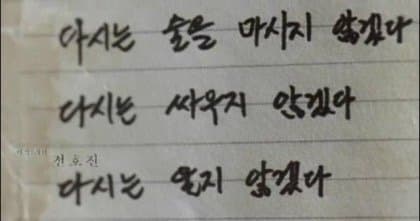 다시는 술을 마시지 않겠다
다시는 싸우지 않겠다
선호진
다시는 울지 않겠다